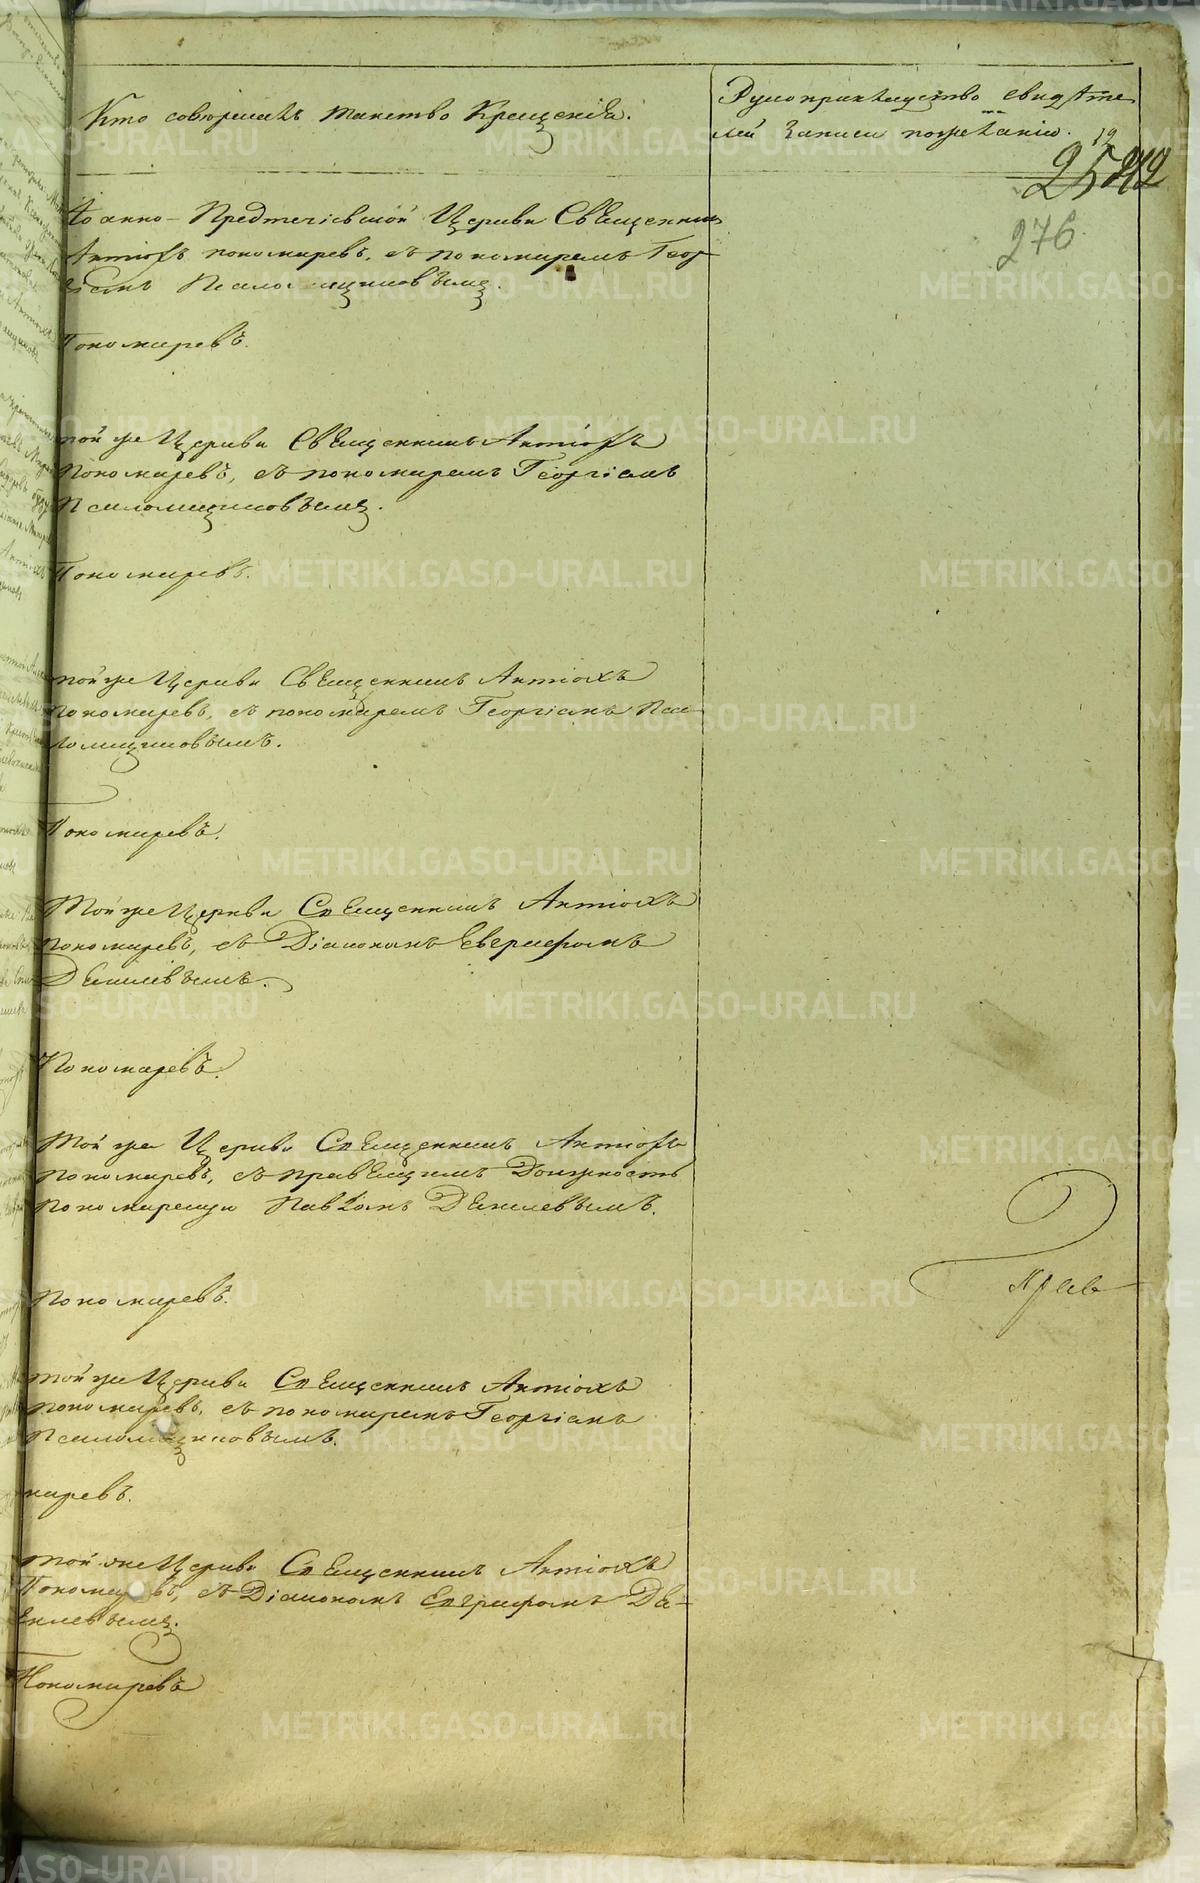 Кто совершалъ таинство Крещенія.
Рукоприкладство свидѣте
лей записи по желанію.
19
276
Іоанно-Предтечіевской Церкви Священникъ
Антіохъ пономаревъ, съ пономаремъ Геор
гіемъ Псаломщиковымъ.
Пономаревъ.
той же Церкви Священникъ Антіохъ
Пономаревъ, съ пономаремъ Георгіемъ
Псаломщиковымъ.
Пономаревъ.
той же Церкви Священникъ Антіохъ
Пономаревъ, съ пономаремъ Георгіемъ Пса-
ломщиковымъ.
Пономаревъ.
Той же Церкви Священникъ Антіохъ
Пономаревъ, съ Діакономъ Евграфомъ
Пономаревъ.
Той же Церкви Священникъ Антіохъ
пономаревъ, съ правящимъ Должность
пономарскую Павломъ
Прав
Пономаревъ.
той же Церкви Священникъ Антіохъ
пономаревъ, съ пономаремъ Георгіемъ
Псаломщиковымъ.
маревъ.
той же Церкви Священникъ Антіохъ
Пономаревъ, съ Діакономъ Евграфомъ
Пономаревъ
METRIKI.GASO-URAL.RU